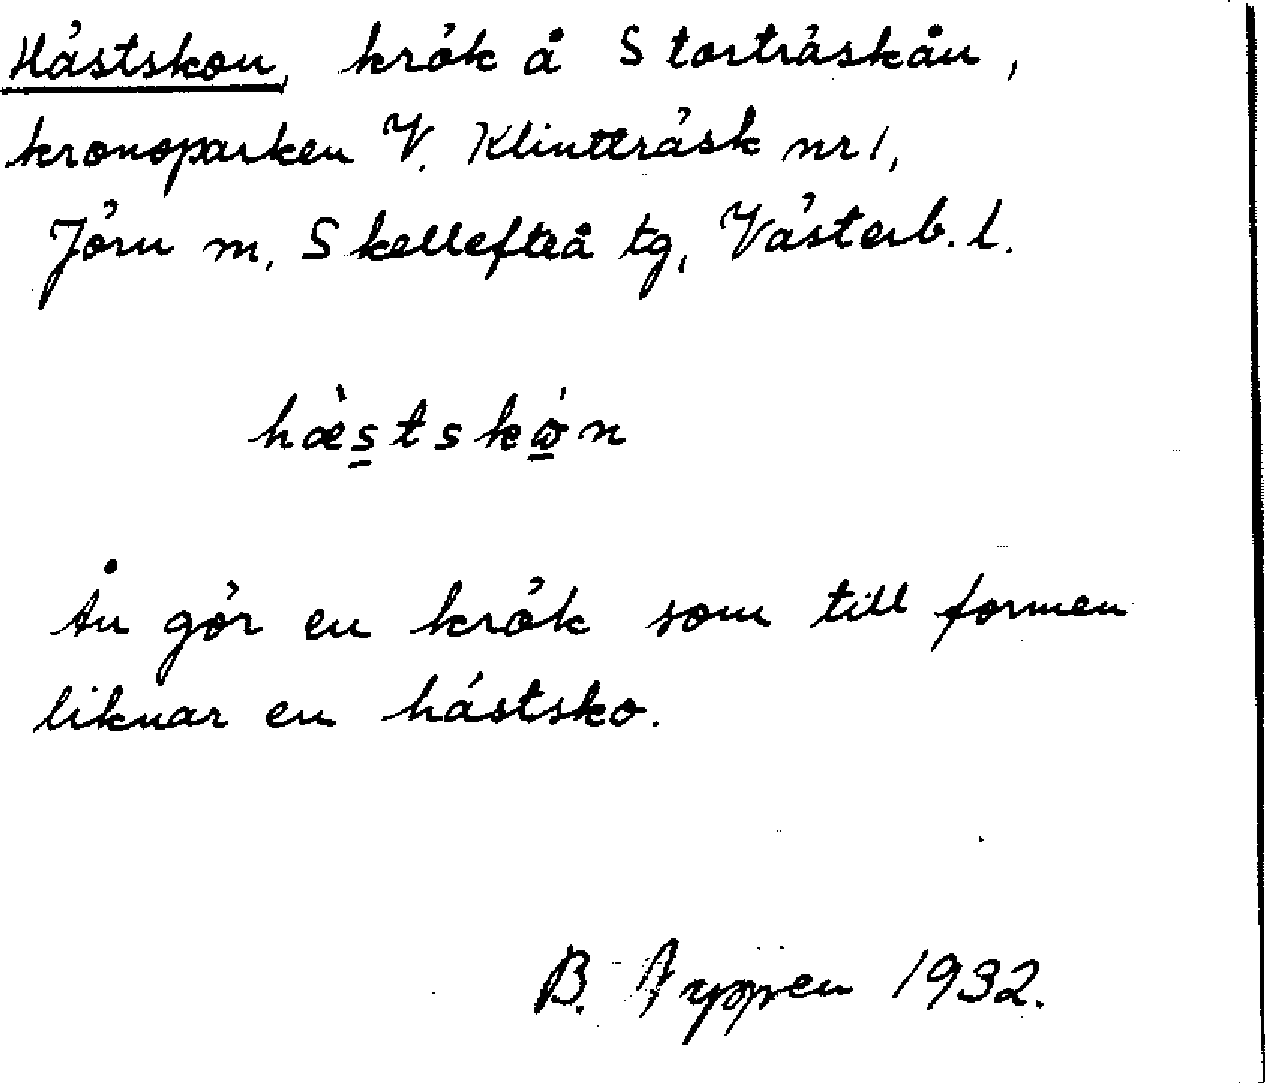 Hästskon, krök å Storträskån,
kronoparken V. Klintträsk nr 1,
Jörn m, Skellefteå tg, Västerb. l.
hæ̀stskὼn
Ån gör en krök som till formen
liknar en hästsko.
B. 1932.